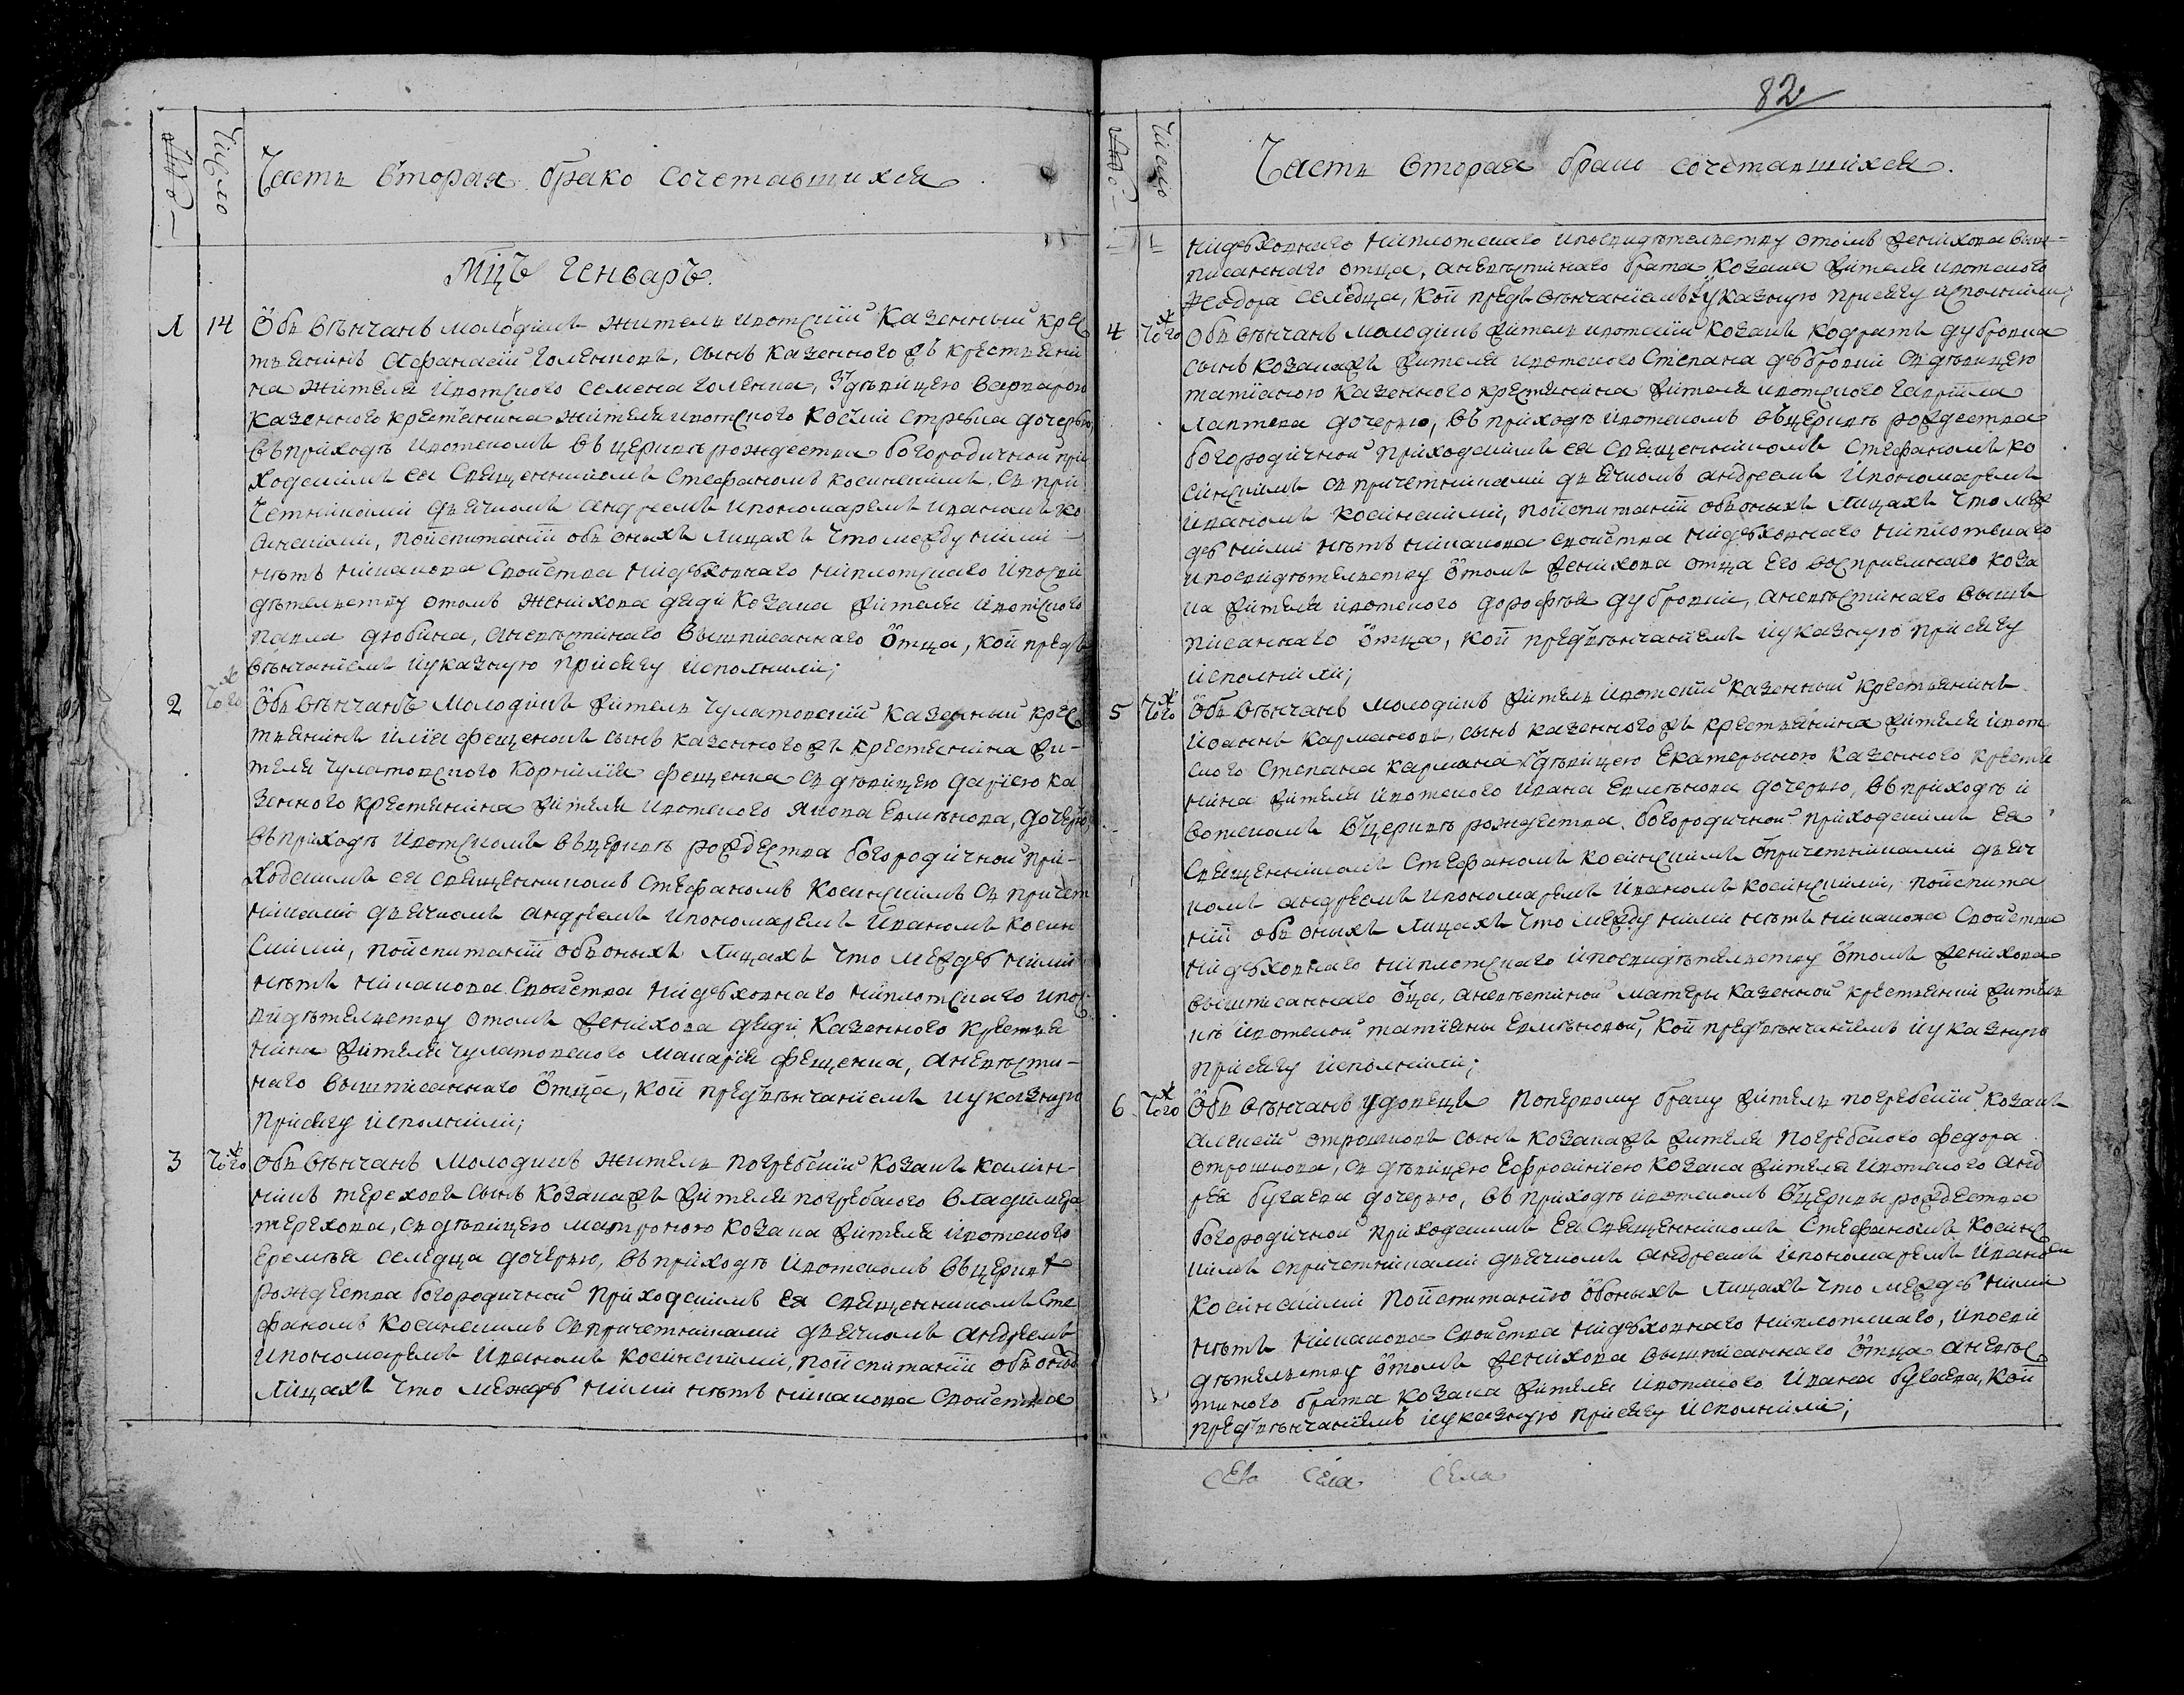 Число
Часть вторая брако сочетавшихся
Мцъ генваръ.
1 14 Объ вѣнчанъ молодикъ житель ивотский казенный крес
тьянинъ Афанасий Голенковъ, сынъ казенного жъ крестьяни
на жителя ивотского Семена Голенка, з дѣвицею Варварою
казенного крестьянина жителя ивотского Косми Стребка дочерью,
въ приходѣ ивотскомъ въ церквѣ рождества богородичной при
ходскимъ ея священникомъ Стефаномъ Косинскимъ, съ при
четниками дьячкомъ Андреемъ и пономаремъ Иваномъ Ко
синскими, по испитании объ оныхъ лицахъ что между ними
нѣтъ никакова свойства ни духовнаго ни плотскаго и по сви
дѣтелству о томъ женихова дяди козака жителя ивотского
Павла Дюбина, а невѣстинаго вышписаннаго отца, кои предъ
вѣнчаниемъ и указную присягу исполнили;
2 того ж Объ вѣнчанъ молодикъ житель чулатовский казенный крес
тьянинъ Илия Фещенокъ сынъ казенного жъ крестьянина жи-
теля чулатовского Корнилия Фещенка съ дѣвицею Дариею ка
зенного крестьянина жителя ивотского Якова Ермѣкова, дочерью,
въ приходѣ ивотскомъ въ церквѣ рождества богородичной при-
ходскимъ ея священникомъ Стефаномъ Косинскимъ съ причет
никами дьячкомъ Андреемъ и пономаремъ Иваномъ Косин
скими, по испитании объ оныхъ лицахъ что между ними
нѣтъ никакова свойства ни духовнаго ни плотскаго и по с
видѣтелству о томъ женихова дяди казенного крестья
нина жителя чулатовского Макария Фещенка, а невѣсти-
наго вышписаннаго отца, кои предъ вѣнчаниемъ и указную
присягу исполнили;
3 того ж Объ вѣнчанъ молодикъ житель погребский козакъ Калин-
никъ Тереховъ сынъ козака жъ жителя погребского Владимера
Терехова, съ дѣвицею Матроною козака жителя ивотского
Еремѣя Селедца дочерью, въ приходѣ ивотскомъ въ церквѣ
рождества богородичной приходскимъ ея священникомъ Сте
фаномъ Косинскимъ съ причетниками дьячкомъ Андреемъ
и пономаремъ Иваномъ Косинскими, по испитании объ оныхъ
лицахъ что между ними нѣтъ никакова свойства
82
Число
Часть вторая брако сочетавшихся.
ни духовнаго ни плотскаго и по свидѣтелству о томъ женихова выш-
писаннаго отца, а невѣстинаго брата козака жителя ивотского
Феодора Селедца, кои предъ вѣнчаниемъ и указную присягу исполнили;
4 того ж Объ вѣнчанъ молодикъ житель ивотский козакъ Кодратъ Дубровка
сынъ козака жъ жителя ивотского Степана Дубровки съ дѣвицею
Татианою казенного крестьянина жителя ивотского Гаврила
Лаптева дочерью, въ приходѣ ивотскомъ въ церквѣ рождества
богородичной приходскимъ ея священникомъ Стефаномъ Ко
синскимъ съ причетниками дьячкомъ Андреемъ и пономаремъ
Иваномъ Косинскими, по испитании объ оныхъ лицахъ что меж
ду ними нѣтъ никакова свойства ни духовнаго ни плотскаго
и по свидѣтелству о томъ женихова отца его восприемнаго коза
ка жителя ивотского Дорофѣя Дубровки, а невѣстинаго выше
писаннаго отца, кои предъ вѣнчаниемъ и указную присягу
исполнили;
5 того ж Объ вѣнчанъ молодикъ житель ивотский казенный крестьянинъ
Иоаннъ Кармановъ, сынъ казенного жъ крестьянина жителя ивот
ского Степана Кармана з дѣвицею Екатерыною казенного крестья
нина жителя ивотского Ивана Ермѣкова дочерью, въ приходѣ и
вотскомъ въ церквѣ рождества богородичной приходскимъ ея
священникомъ Стефаномъ Косинскимъ с причетниками дьяч
комъ Андреемъ и пономаремъ Иваномъ Косинскими, по испита
нии объ оныхъ лицахъ что между ними нѣтъ никакова свойства
ни духовнаго ни плотскаго и по свидѣтелству о томъ женихова
вышписаннаго оца, а невѣстиной матеры казенной крестьянки житель
кѣ ивотской Татияны Ермѣковой, кои предъ вѣнчаниемъ и указную
присягу исполнили;
6 того ж Объ вѣнчанъ удовецъ по первому браку житель погребский козакъ
Алексий Отрошковъ сынъ козака жъ жителя погребского Федора
Отрошкова, съ дѣвицею Ефросиниею козака жителя ивотского Анд
рея Бугаева дочерью, въ приходѣ ивотскомъ въ церквы рождества
богородичной приходскимъ ея священникомъ Стефаномъ Косинс
кимъ с причетниками дьячкомъ Андреемъ и пономаремъ Иваномъ
Косинскими по испитанию об оныхъ лицахъ что между ними
нѣтъ никакова свойства ни духовнаго ни плотскаго, и по сви
дѣтелству о томъ женихова вышписаннаго отца а невѣс
тиного брата козака жителя ивотского Ивана Бугаева, кои
предъ вѣнчаниемъ и указную присягу исполнили;
села